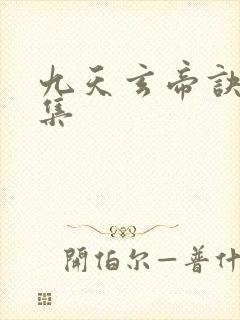 九天玄帝訣
集
開伯尔—普什